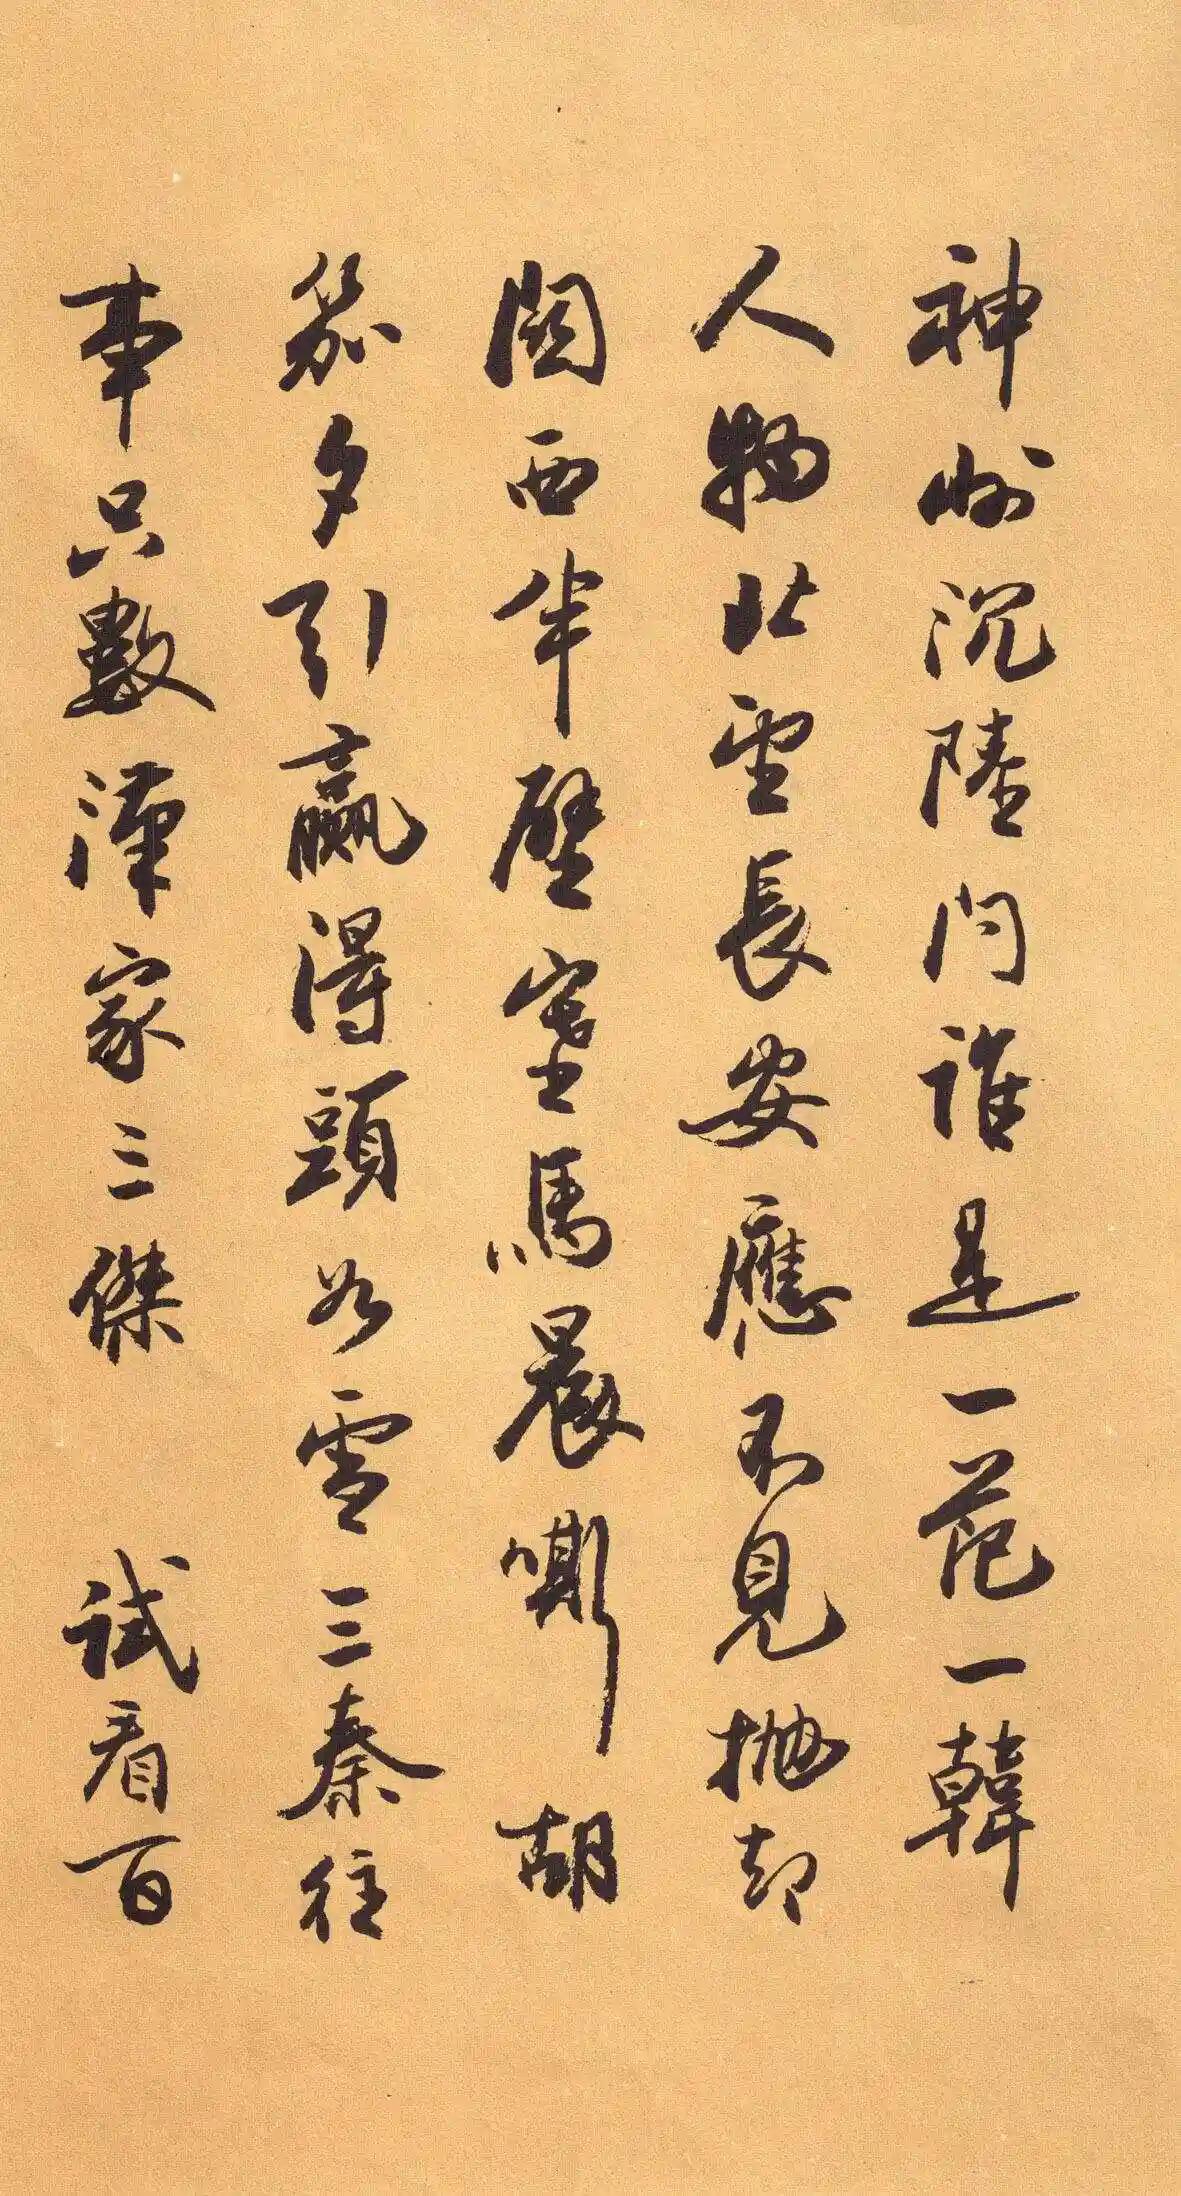 神州沉陸問誰是一范一韓
人物北望長安應不見抛却
關西半壁塞馬晨嘶胡
笳夕引贏得頭如雪三秦往
事只數漢家三傑 試看百